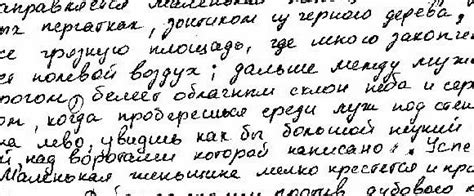 аправляется маленькая
ых перчатках, зонтиком из черного дерева,
се грязную площадь, где много закопче
ет полевой воздух; дальше между муж
рогом, белеет облачным склон неба и сер
ом, когда проберешься среди луж под стен
на лево, увидишь как бы большой некий
й, над воротами которой написано: "Успе
Маленькая женщина мелко крестится и кра
против дубового